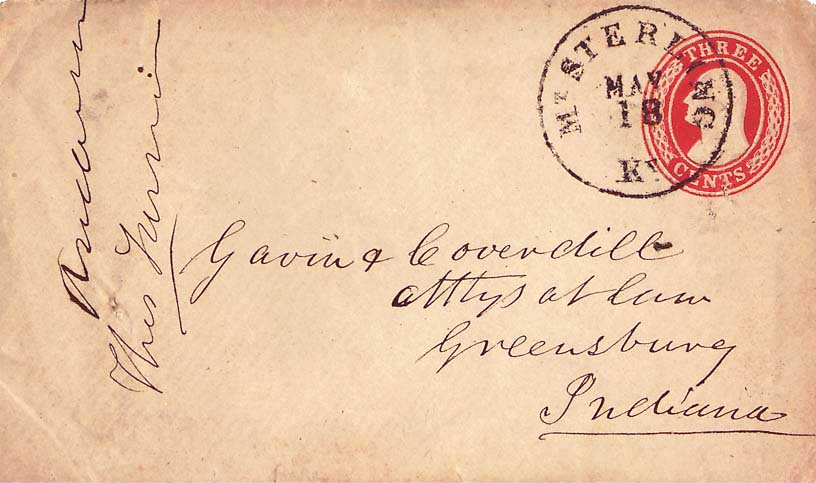 Mt STERLING
MAY
18
KY
THREE
CENTS
Gavin & Coverdill
Attys at Law
Greensburg
Indiana